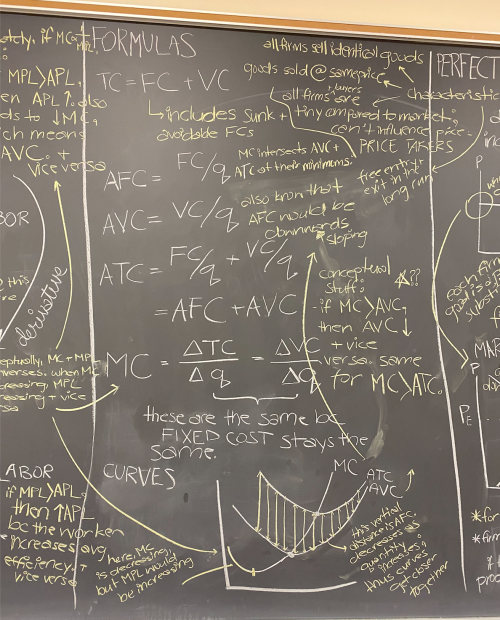 FORMULAS
TC = FC + VC
↳ includes sunk +
avoidable FCs
AFC = FC/q
AVC = VC/q
ATC = FC/q + VC/q
= AFC + AVC
MC = ΔTC/Δq = ΔVC/Δq
these are the same bc
FIXED COST stays the
same.
CURVES
MC
ATC
AVC
here, MC
is decreasing,
but MPL would
be increasing
this vertical
distance is AFC,
decreases as
quantity
increases;
thus curves
get closer
together
MC intersects AVC +
ATC at their minimums.
also know that
AFC would be
downwards
sloping
conceptual
stuff:
if MC > AVC,
then AVC ↓
+ vice
versa. same
for MC > ATC.
all firms sell identical goods
goods sold @ same price
all firms + buyers are
tiny compared to market;
can't influence price -
PRICE TAKERS
free entry +
exit in the
long run
PERFECT
characteristic
MPL > APL,
APL ↑. also
↓ MC,
which means
AVC. +
vice versa
derivative
MC + MP
when MC
MPL
+ vice
LABOR
if MPL > APL
then ↑ APL
bc the worker
increases avg
efficiency, +
vice versa
P
each firm
MAR
P
PE
*for
*firm